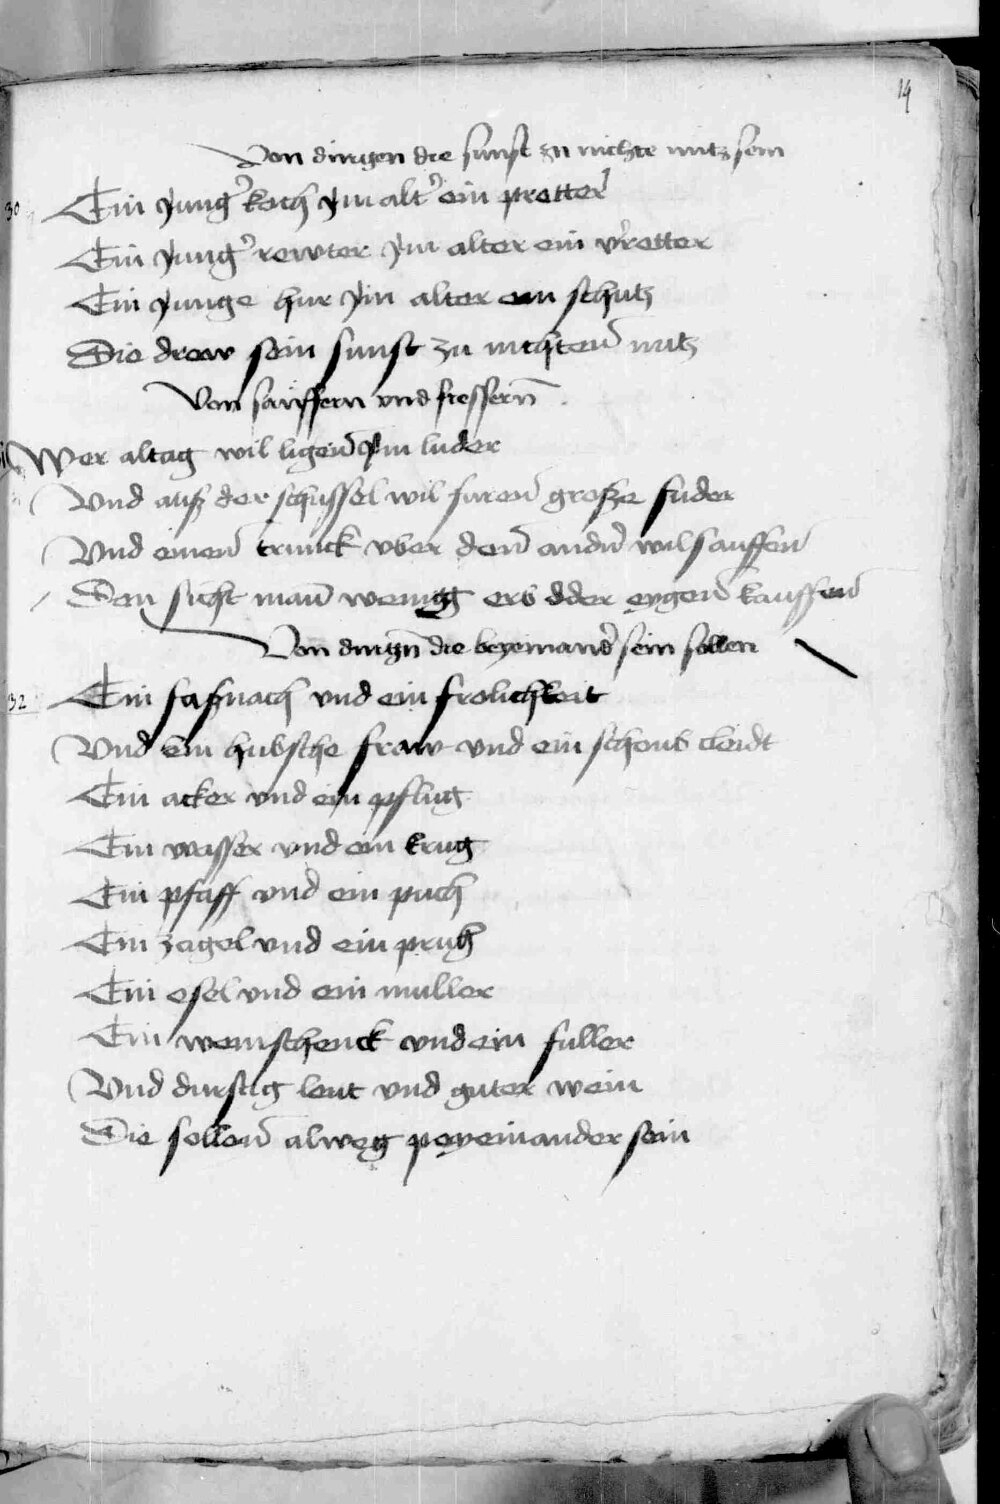 14
Von dingen die sunst zu nichte nutz sein
30 Ein Jung' koch Jm alt' ein pretter
Ein Jung' rewter Jm alter ein v'retter
Ein Junge hur Jm alter ein schutz
Die drew sein sunst zu nichten nutz
Von sauffern vnd fressern̄
Wer altag wil ligen̄ Jm luder
Vnd auß der schussel wil furen̄ große fuder
Vnd einen̄ trunck vber den̄ andn̄ wil sauffen̄
Den sicht man̄ wenigg erb oder eygen̄ kauffen̄
Von dingn̄ die beyemand' sein sollen
32 Ein faßnach vnd ein frolichkeit
Vnd ein hubsche fraw vnd ein schons cleidt
Ein acker vnd ein pflug
Ein wasser vnd ein krug
Ein pfaff vnd ein puch
Ein zagel vnd ein pruch
Ein esel vnd ein muller
Ein weinschenck vnd ein fuller
Vnd durstig leut vnd guter wein
Die sollen̄ alweg peyeinander sein